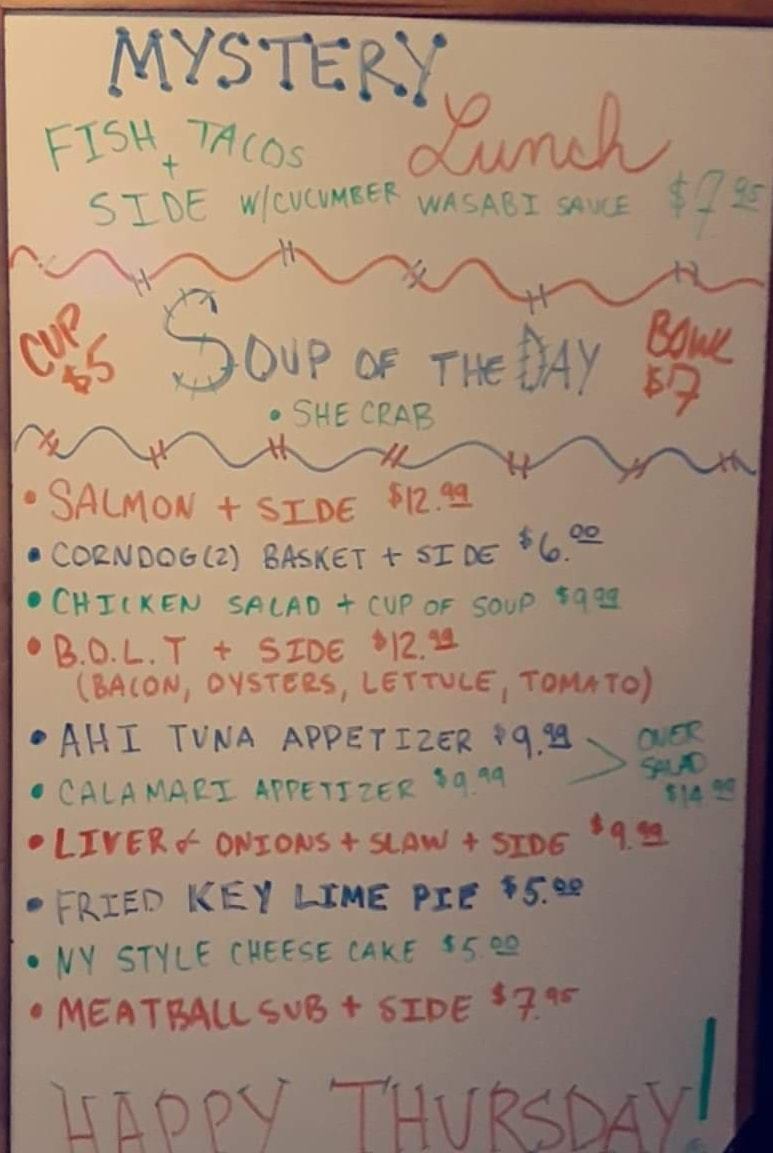 MYSTERY
Lunch
FISH + TACOS
SIDE W/CUCUMBER WASABI SAUCE $7.95
CUP $5
SOUP OF THE DAY
BOWL $7
• SHE CRAB
• SALMON + SIDE $12.99
• CORNDOG(2) BASKET + SIDE $6.00
• CHICKEN SALAD + CUP OF SOUP $9.99
• B.O.L.T + SIDE $12.99
(BACON, OYSTERS, LETTUCE, TOMATO)
• AHI TUNA APPETIZER $9.99
• CALAMARI APPETIZER $9.99
OVER
SALAD
$14.99
• LIVER & ONIONS + SLAW + SIDE $9.99
• FRIED KEY LIME PIE $5.00
• NY STYLE CHEESE CAKE $5.00
• MEATBALL SUB + SIDE $7.95
HAPPY THURSDAY!